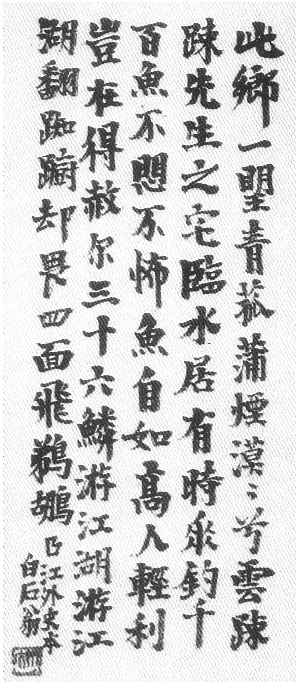 此鄉一望青菰蒲煙漠〻兮雲踈
踈先生之宅臨水居有時垂釣千
百魚不愳不怖魚自如高人輕利
豈在得赦尔三十六鱗游江湖游江
湖翻踟躕却畏四面飛鵜鶘乃江外史本
白石翁